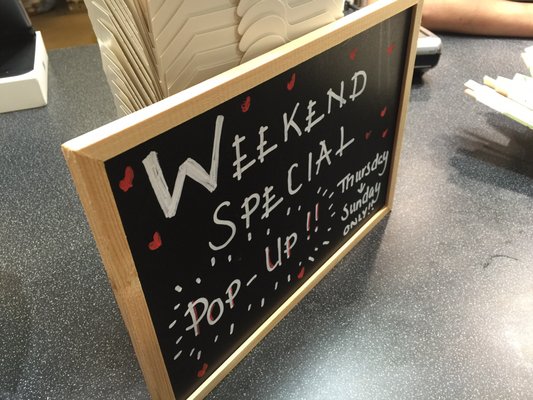 WEEKEND
SPECIAL
POP-UP!!
Thursday
Sunday
ONLY!!!